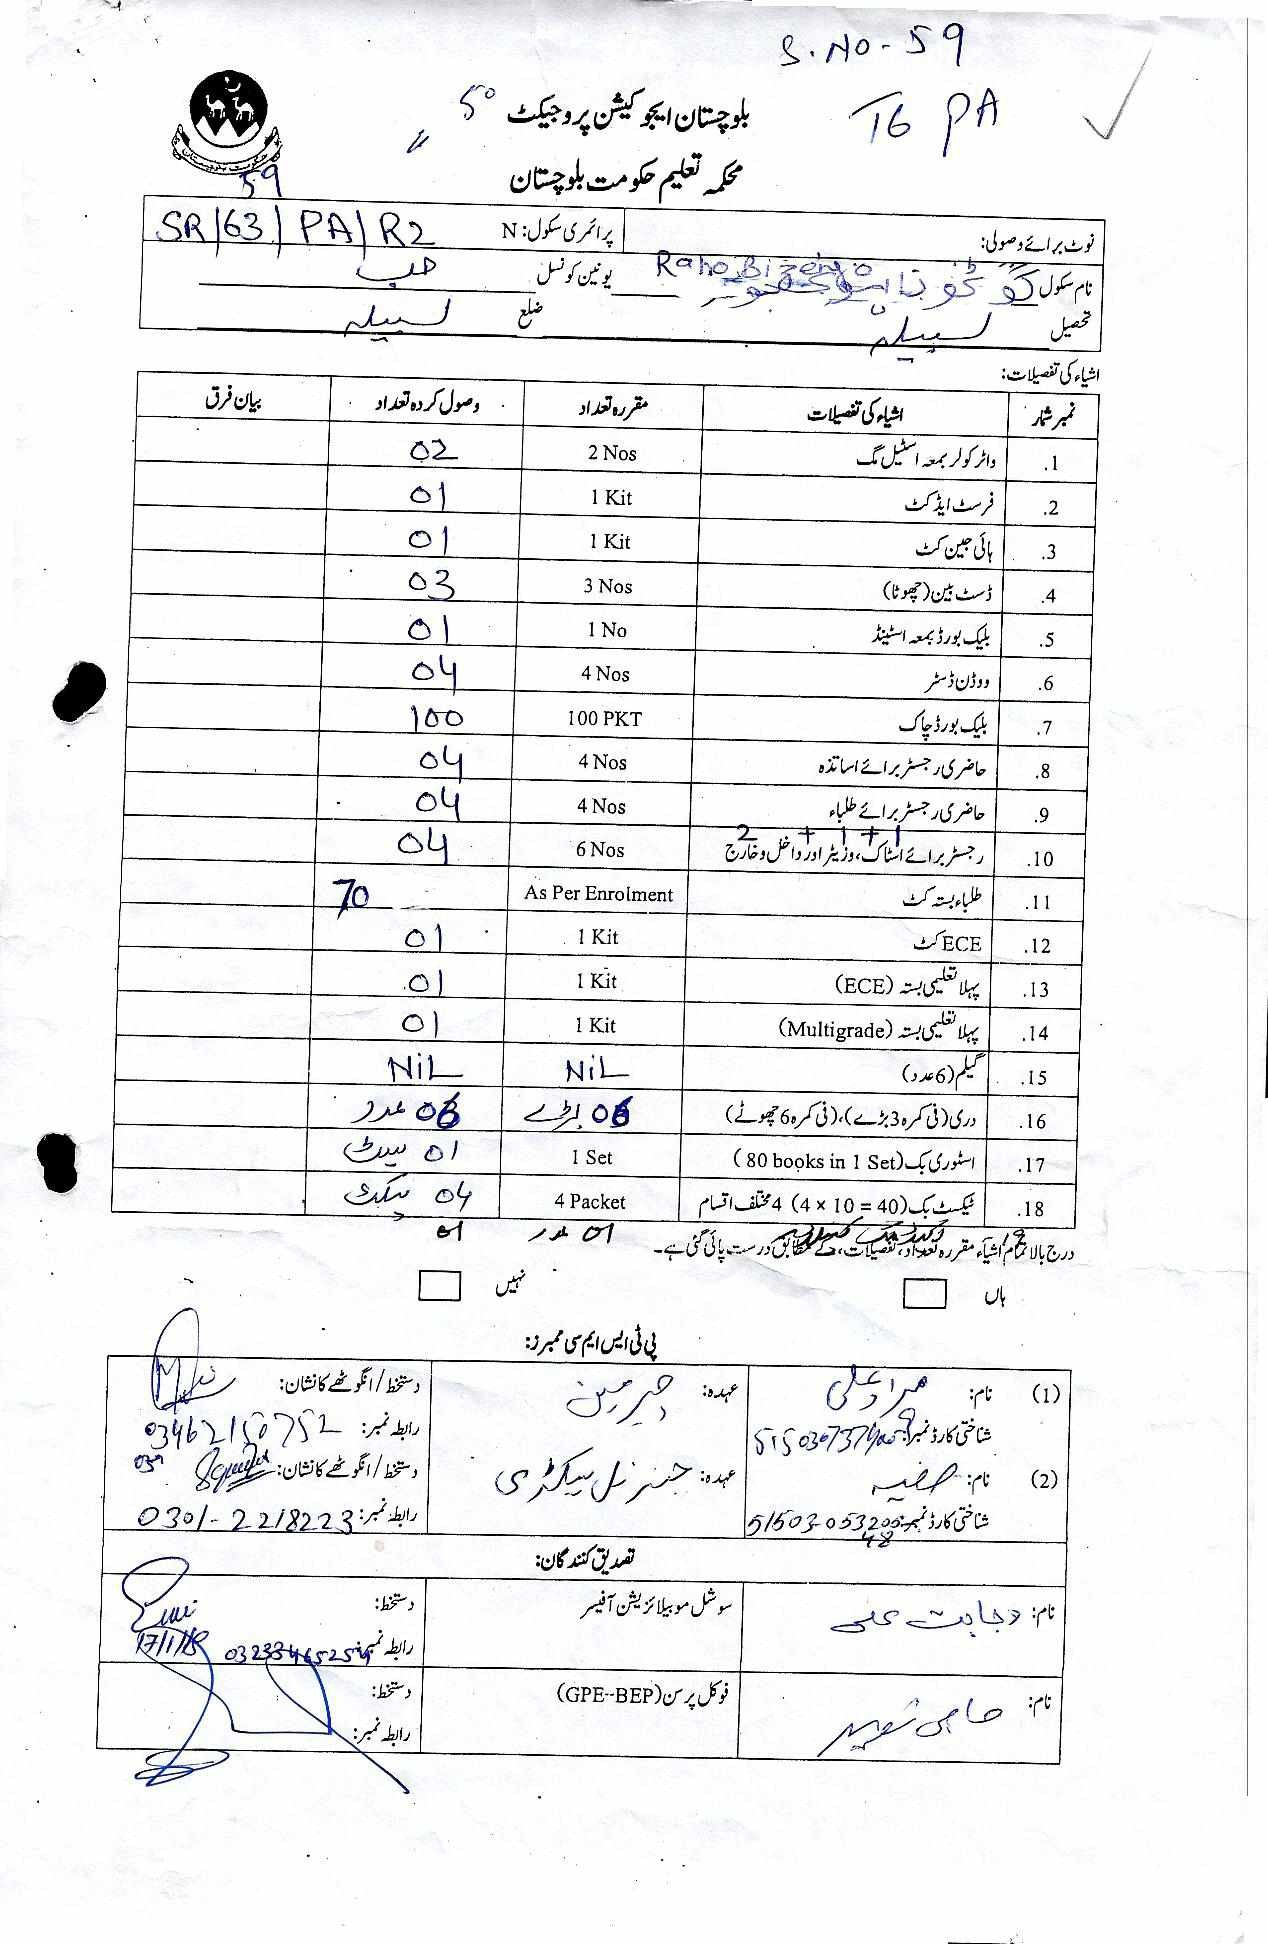 S.No-59
T6 PA
5⁰
بلوچستان ایجوکیشن پروجیکٹ
محکمہ تعلیم حکومت بلوچستان
59
نوٹ برائے وصولی: پرائمری سکول: N SR/63/PA/R2
نام سکول گوٹھ Raho Bizenjo یونین کونسل حب
تحصیل لسبیلہ ضلع لسبیلہ
اشیاء کی تفصیلات:
نمبر شمار اشیاء کی تفصیلات مقررہ تعداد وصول کردہ تعداد بیان فرق
1. واٹر کولر بمعہ اسٹیل مگ 2 Nos 02
2. فرسٹ ایڈ کٹ 1 Kit 01
3. ہائی جین کٹ 1 Kit 01
4. ڈسٹ بین (چھوٹا) 3 Nos 03
5. بلیک بورڈ بمعہ اسٹینڈ 1 No 01
6. ووڈن ڈسٹر 4 Nos 04
7. بلیک بورڈ چاک 100 PKT 100
8. حاضری رجسٹر برائے اساتذہ 4 Nos 04
9. حاضری رجسٹر برائے طلباء 4 Nos 04
2 + 1 + 1
10. رجسٹر برائے اسٹاک، وزیٹر اور داخل و خارج 6 Nos 04
11. طلباء بستہ کٹ As Per Enrolment 70
12. ECE کٹ 1 Kit 01
13. پہلا تعلیمی بستہ (ECE) 1 Kit 01
14. پہلا تعلیمی بستہ (Multigrade) 1 Kit 01
15. گیلم (6 عدد) NiL NiL
16. دری (فی کمرہ 3 بڑے)، (فی کمرہ 6 چھوٹے) 06 بڑے 06 عدد
17. اسٹوری بک (80 books in 1 Set) 1 Set 01 سیٹ
18. ٹیکسٹ بک (4 × 10 = 40) 4 مختلف اقسام 4 Packet 04 پیکٹ
19 01 عدد 01
درج بالا تمام اشیاء مقررہ تعداد، تفصیلات، کے مطابق درست پائی گئی ہے۔
ہاں نہیں
پی ٹی ایس ایم سی ممبرز:
(1) نام: مراد علی عہدہ: چیرمین دستخط/انگوٹھے کا نشان:
شناختی کارڈ نمبر: رابطہ نمبر: 03462150752
(2) نام: صفیہ عہدہ: جنرل سیکٹری دستخط/انگوٹھے کا نشان:
شناختی کارڈ نمبر: 51503-053205 48 رابطہ نمبر: 0301-2218223
تصدیق کنندگان:
نام: وجاہت علی سوشل موبیلائزیشن آفیسر دستخط:
رابطہ نمبر: 17/1/18
نام: حاجی فوکل پرسن (GPE--BEP) دستخط:
رابطہ نمبر: